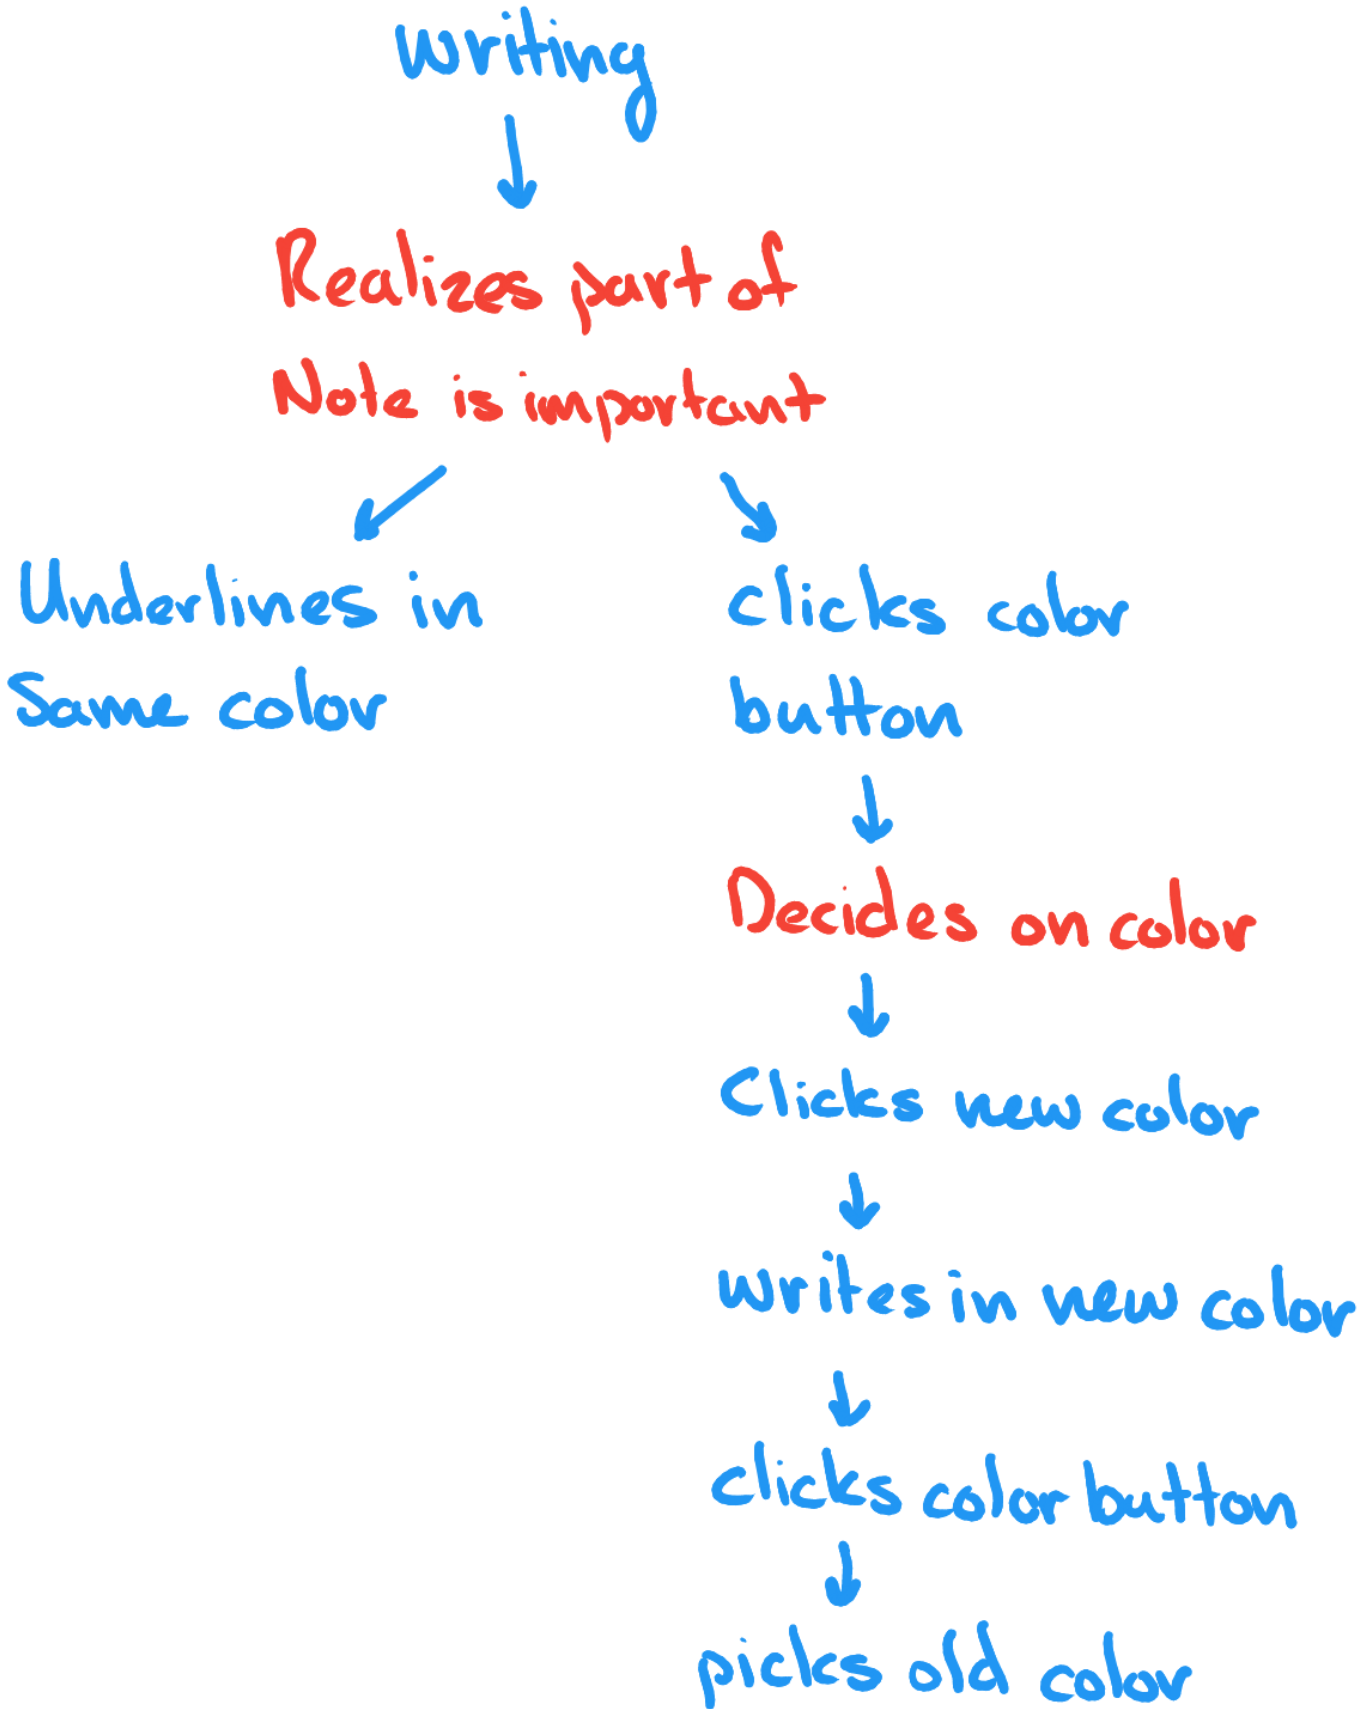 writing
Realizes part of
Note is important
Underlines in
Same color
clicks color
button
Decides on color
Clicks new color
writes in new color
clicks color button
picks old color